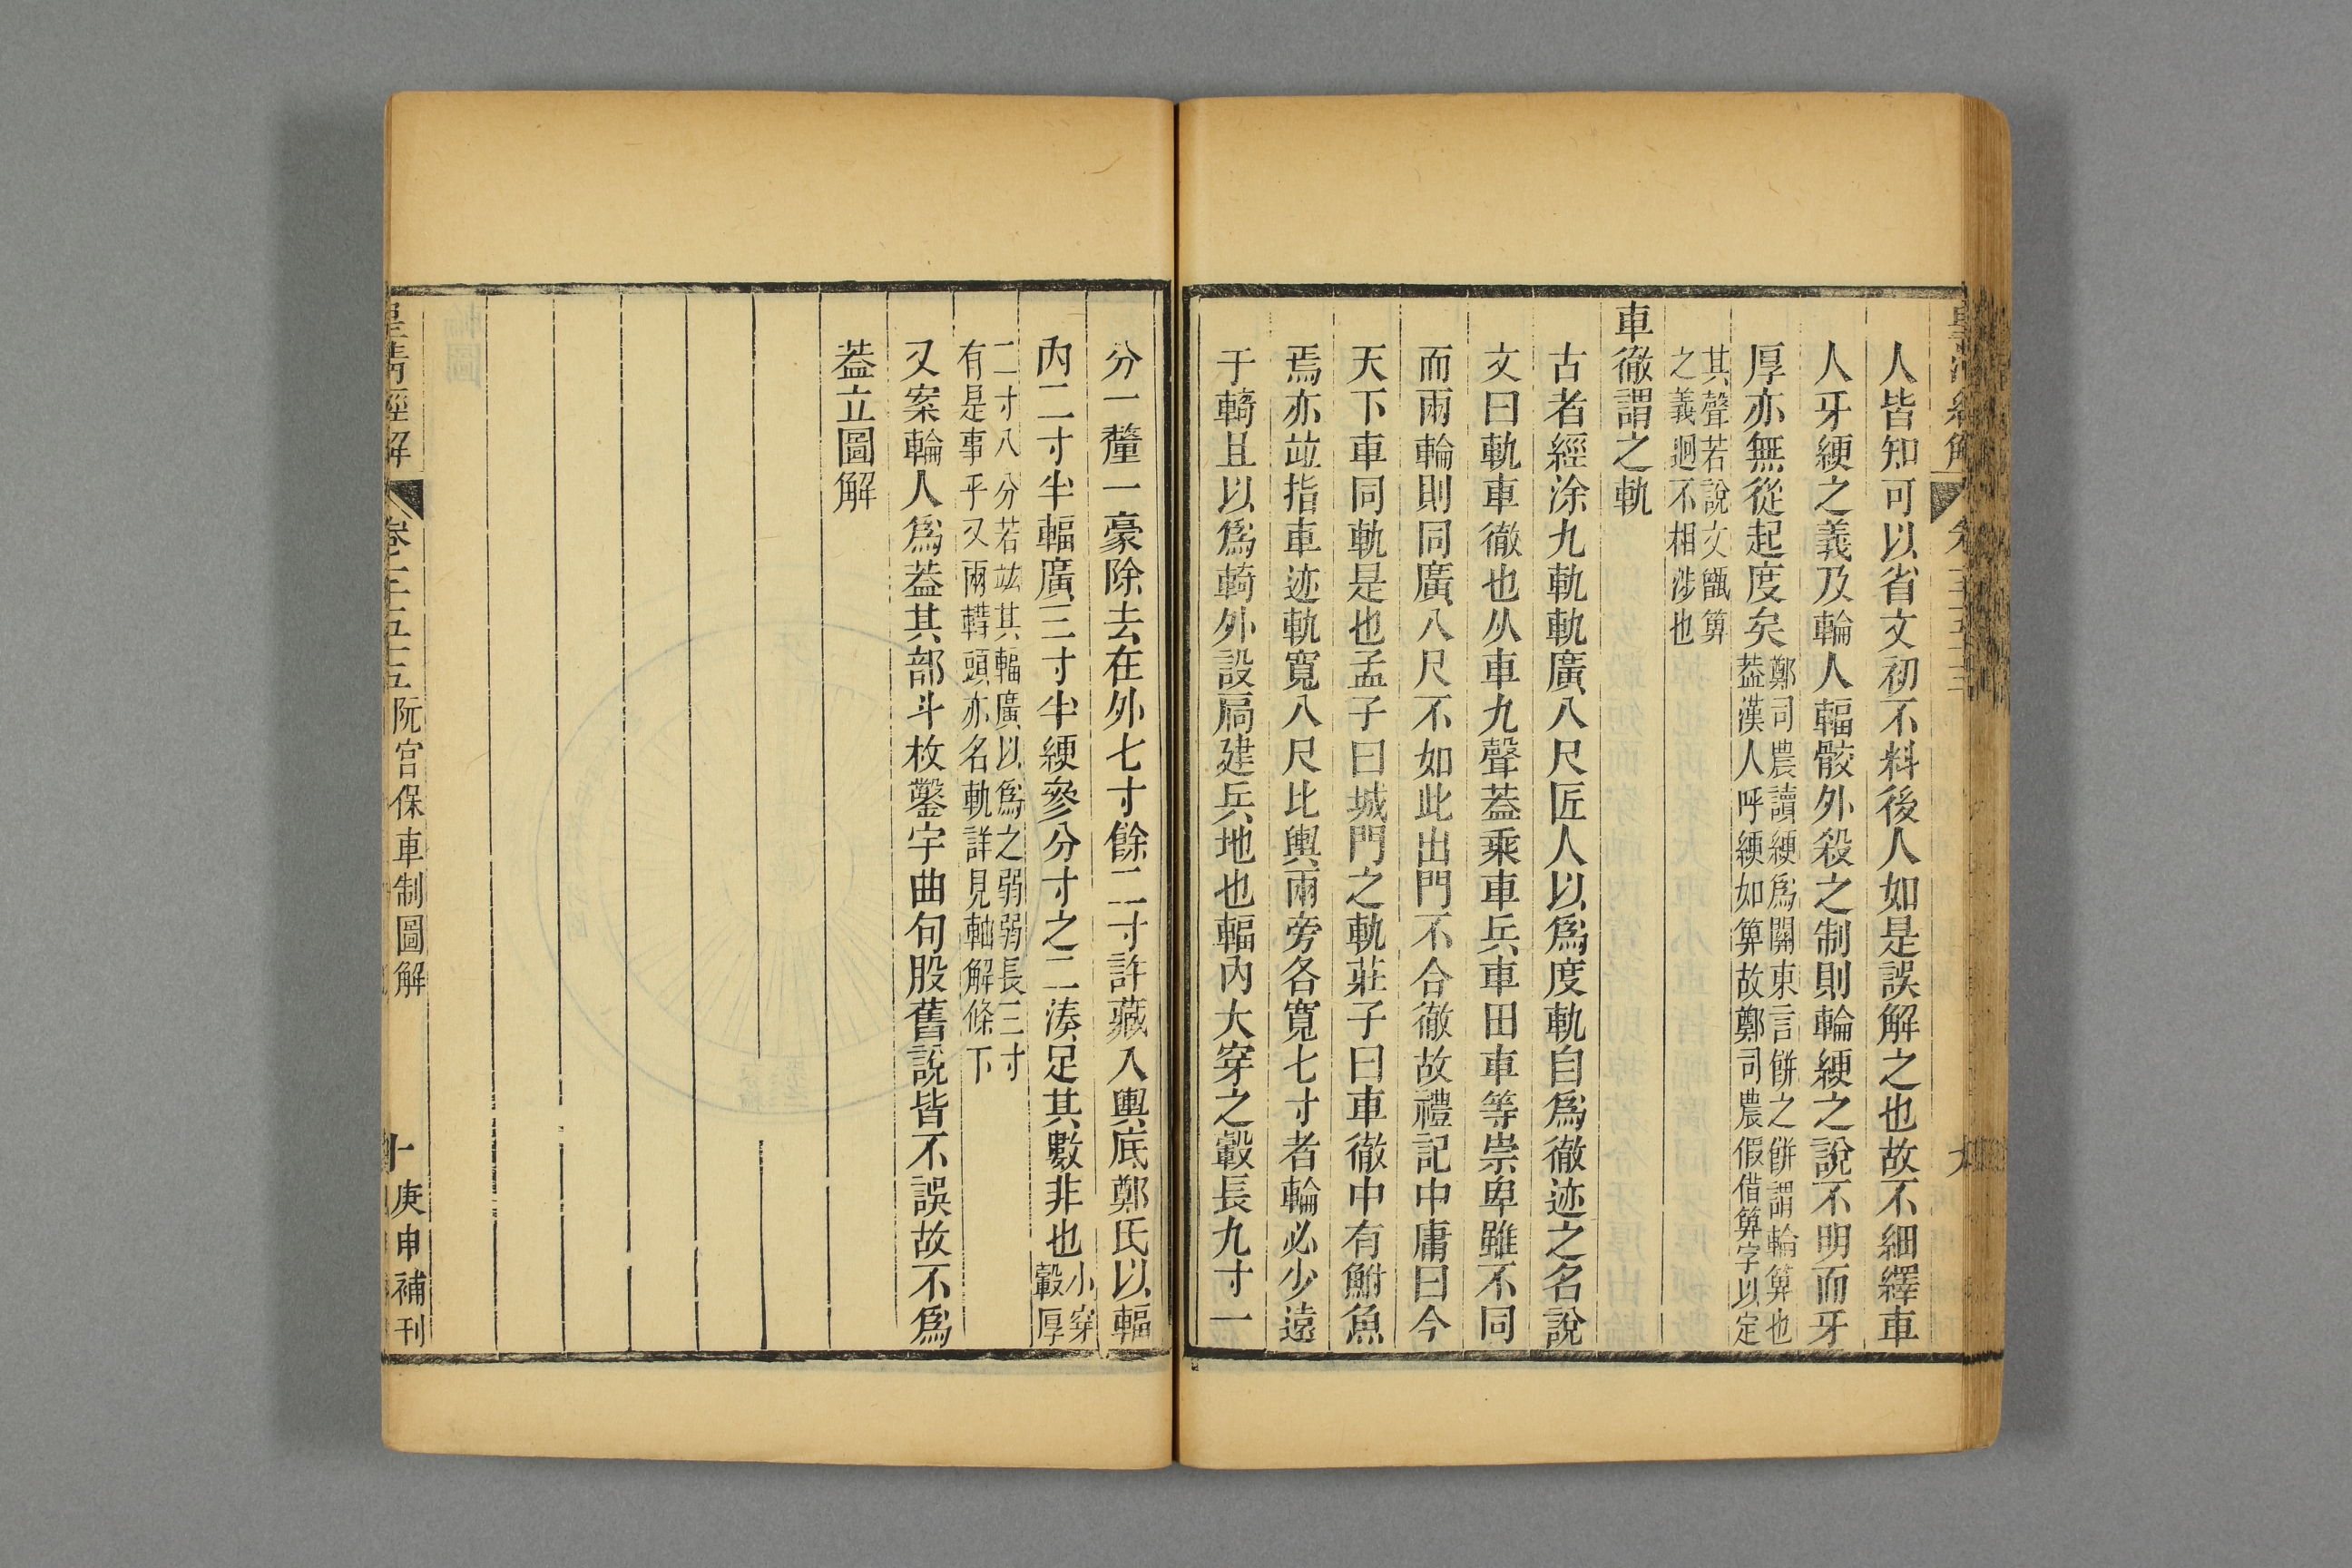 人皆知可以省文初不料後人如是誤解之也故不細繹車
人牙綆之義及輪人輻骹外殺之制則輪綆之說不明而牙
厚亦無從起度矣鄭司農讀綆爲關東言餅之餅謂輪箅也
蓋漢人呼綆如箅故鄭司農假借箅字以定
其聲若說文甑箅
之義迥不相涉也
車徹謂之軌
古者經涂九軌軌廣八尺匠人以爲度軌自爲徹迹之名說
文曰軌車徹也从車九聲蓋乘車兵車田車等崇卑雖不同
而兩輪則同廣八尺不如此出門不合徹故禮記中庸曰今
天下車同軌是也孟子曰城門之軌莊子曰車徹中有鮒魚
焉亦竝指車迹軌寬八尺比輿兩旁各寬七寸者輪必少遠
于輢且以爲輢外設局建兵地也輻內大穿之轂長九寸一
分一釐一豪除去在外七寸餘二寸許藏入輿底鄭氏以輻
內二寸半輻廣三寸半綆參分寸之二湊足其數非也小穿
轂厚
二寸八分若竝其輻廣以爲之弱弱長三寸
有是事乎又兩轊頭亦名軌詳見軸解條下
又案輪人爲蓋其部斗枚鑿宇曲句股舊說皆不誤故不爲
蓋立圖解
皇清經解
卷千五十五
阮宮保車制圖解
十
庚申補刊